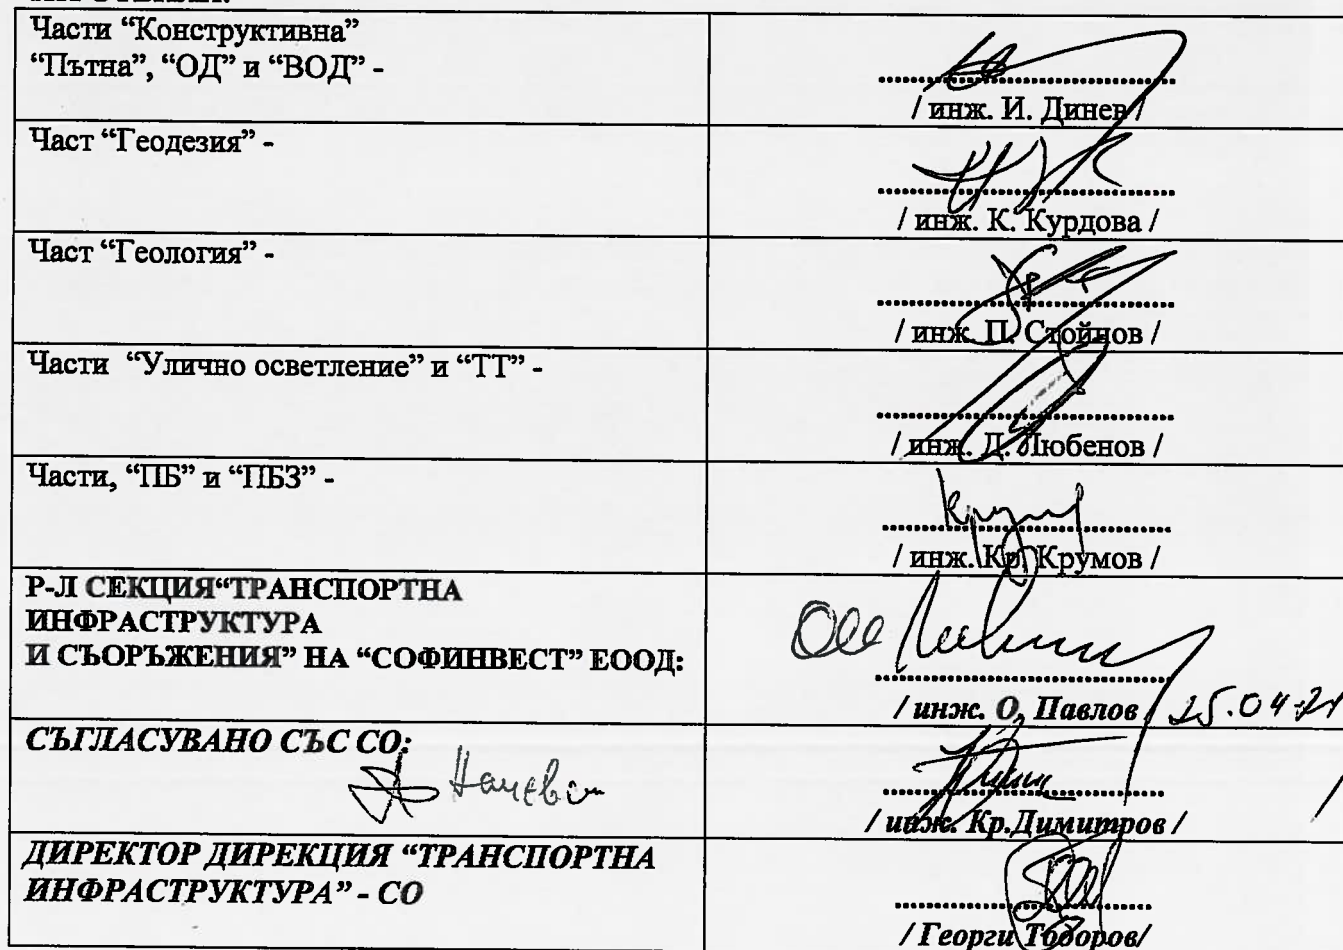 Части “Конструктивна”
“Пътна”, “ОД” и “ВОД” -
/ инж. И. Динев /
Част “Геодезия” -
/ инж. К. Курдова /
Част “Геология” -
/ инж. П. Стойнов /
Части “Улично осветление” и “ТТ” -
/ инж. Д. Любенов /
Части, “ПБ” и “ПБЗ” -
/ инж. Кр. Крумов /
Р-Л СЕКЦИЯ“ТРАНСПОРТНА
ИНФРАСТРУКТУРА
И СЪОРЪЖЕНИЯ” НА “СОФИНВЕСТ” ЕООД:
/ инж. О. Павлов /
СЪГЛАСУВАНО СЪС СО:
/ инж. Кр.Димитров /
ДИРЕКТОР ДИРЕКЦИЯ “ТРАНСПОРТНА
ИНФРАСТРУКТУРА” - СО
/ Георги Тодоров/